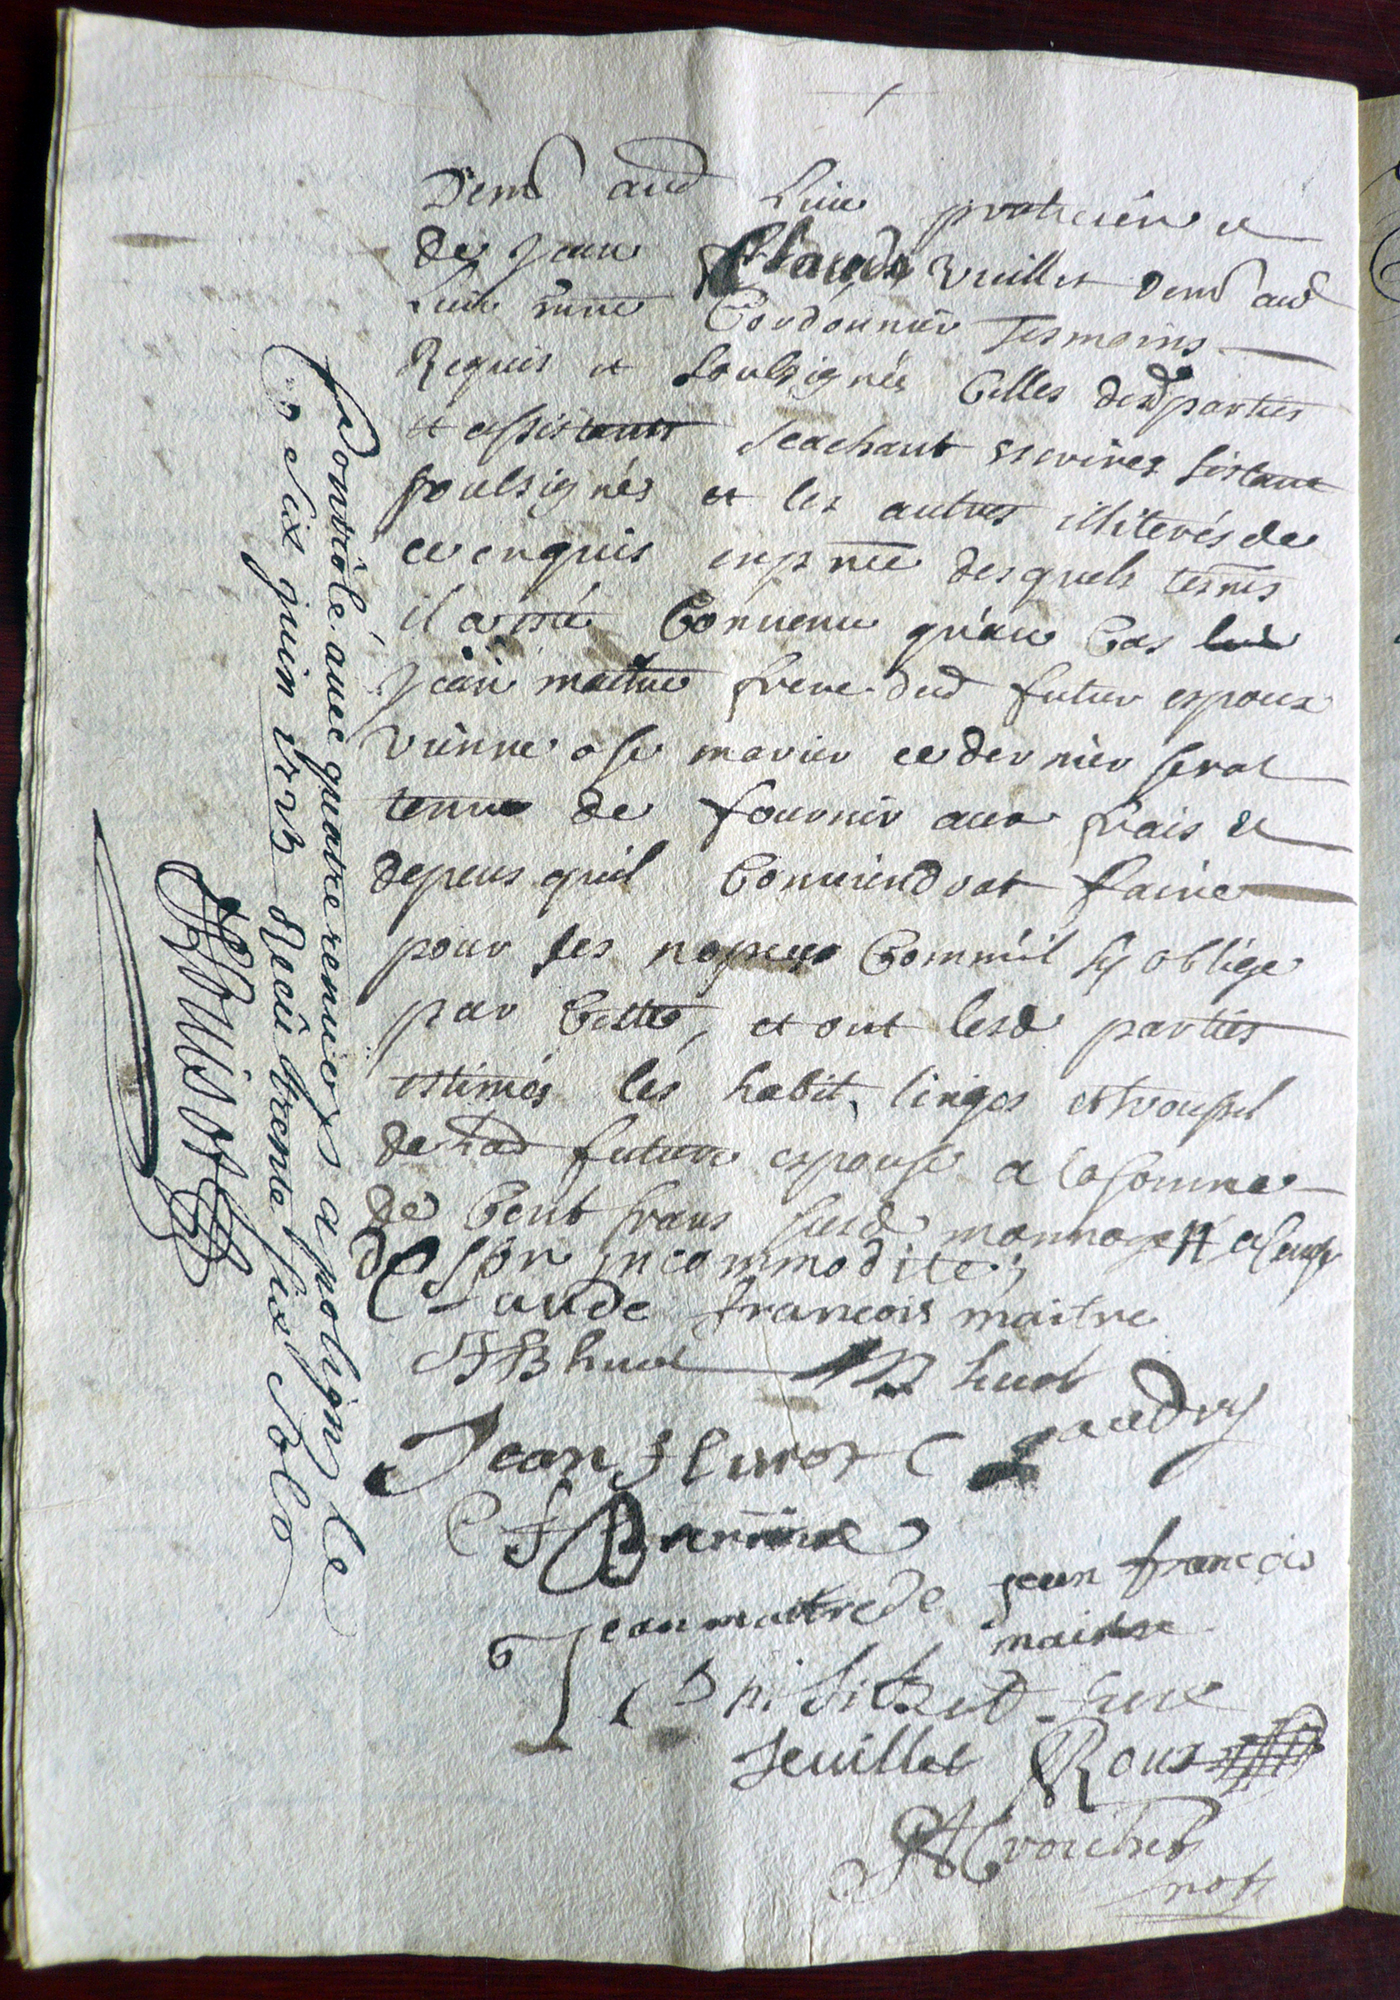 Demt aud lieu praticien et
de Jean Claude Vuillet demt aud
lieu me Cordonnier tesmoins
Requis et soubsignés Celles desd parties
et assistants scachant escrires sestant
soulsignés et les autres illiterés de
ce enquis en pnce desquels tesms
il a esté Convenu qu'au Cas
jean maitre frere dud futur espoux
vienne a se marier ce dernier serat
tenu de fournir aux frais et
depens quil Conviendrat faire
pour ses nopces Comm'il sy oblige
par Cette, et ont lesd parties
estimés les habit, linges et troussel
de lad future espouse a la somme
de Cent frans susd monnoye
de son incommodité;
Claude francois maitre
JFB huot B huot
Jean f huot C gaudry
C f
Jean maitre de jean francois
maitre
vuillet Roux
A Croichet
not
Controlé avec quatre renvois a poligny le
six juin Recû trente six sols